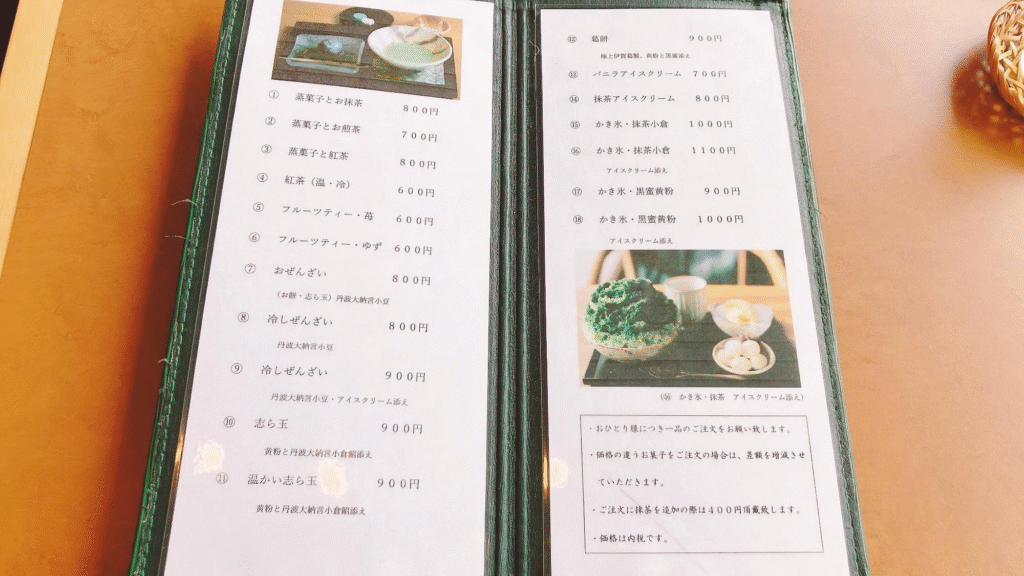 ① 蒸菓子とお抹茶 800円
② 蒸菓子とお煎茶 700円
③ 蒸菓子と紅茶 800円
④ 紅茶（温・冷） 600円
⑤ フルーツティー・苺 600円
⑥ フルーツティー・ゆず 600円
⑦ おぜんざい 800円
（お餅・志ら玉）丹波大納言小豆
⑧ 冷しぜんざい 800円
丹波大納言小豆
⑨ 冷しぜんざい 900円
丹波大納言小豆・アイスクリーム添え
⑩ 志ら玉 900円
黄粉と丹波大納言小倉餡添え
⑪ 温かい志ら玉 900円
黄粉と丹波大納言小倉餡添え
⑫ 葛餅 900円
極上伊賀葛製、黄粉と黒蜜添え
⑬ バニラアイスクリーム 700円
⑭ 抹茶アイスクリーム 800円
⑮ かき氷・抹茶小倉 1000円
⑯ かき氷・抹茶小倉 1100円
アイスクリーム添え
⑰ かき氷・黒蜜黄粉 900円
⑱ かき氷・黒蜜黄粉 1000円
アイスクリーム添え
（⑯ かき氷・抹茶 アイスクリーム添え）
・おひとり様につき一品のご注文をお願い致します。
・価格の違うお菓子をご注文の場合は、差額を増減させ
ていただきます。
・ご注文に抹茶を追加の際は400円頂戴致します。
・価格は内税です。